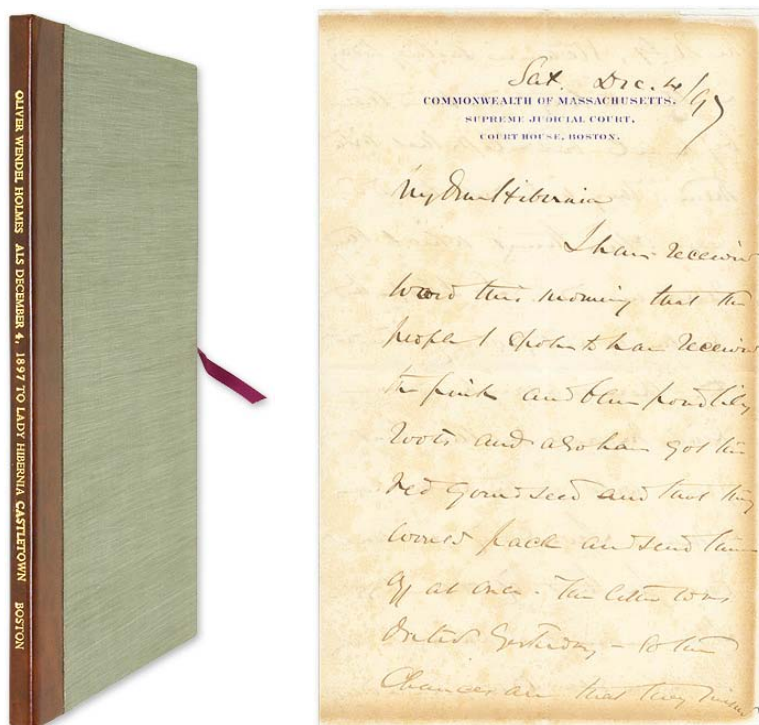 OLIVER WENDEL HOLMES ALS DECEMBER 4, 1897 TO LADY HIBERNIA CASTLETOWN BOSTON
Sat. Dec. 4/97
COMMONWEALTH OF MASSACHUSETTS.
SUPREME JUDICIAL COURT,
COURT HOUSE, BOSTON.
My Dear Hibernia
I have received
word this morning that the
people I spoke to have received
the pink and blue pond lily
roots and also have got the
red gourd seed and that they
would pack and send them
off at once. The letter was
dated yesterday – so the
chances are that they